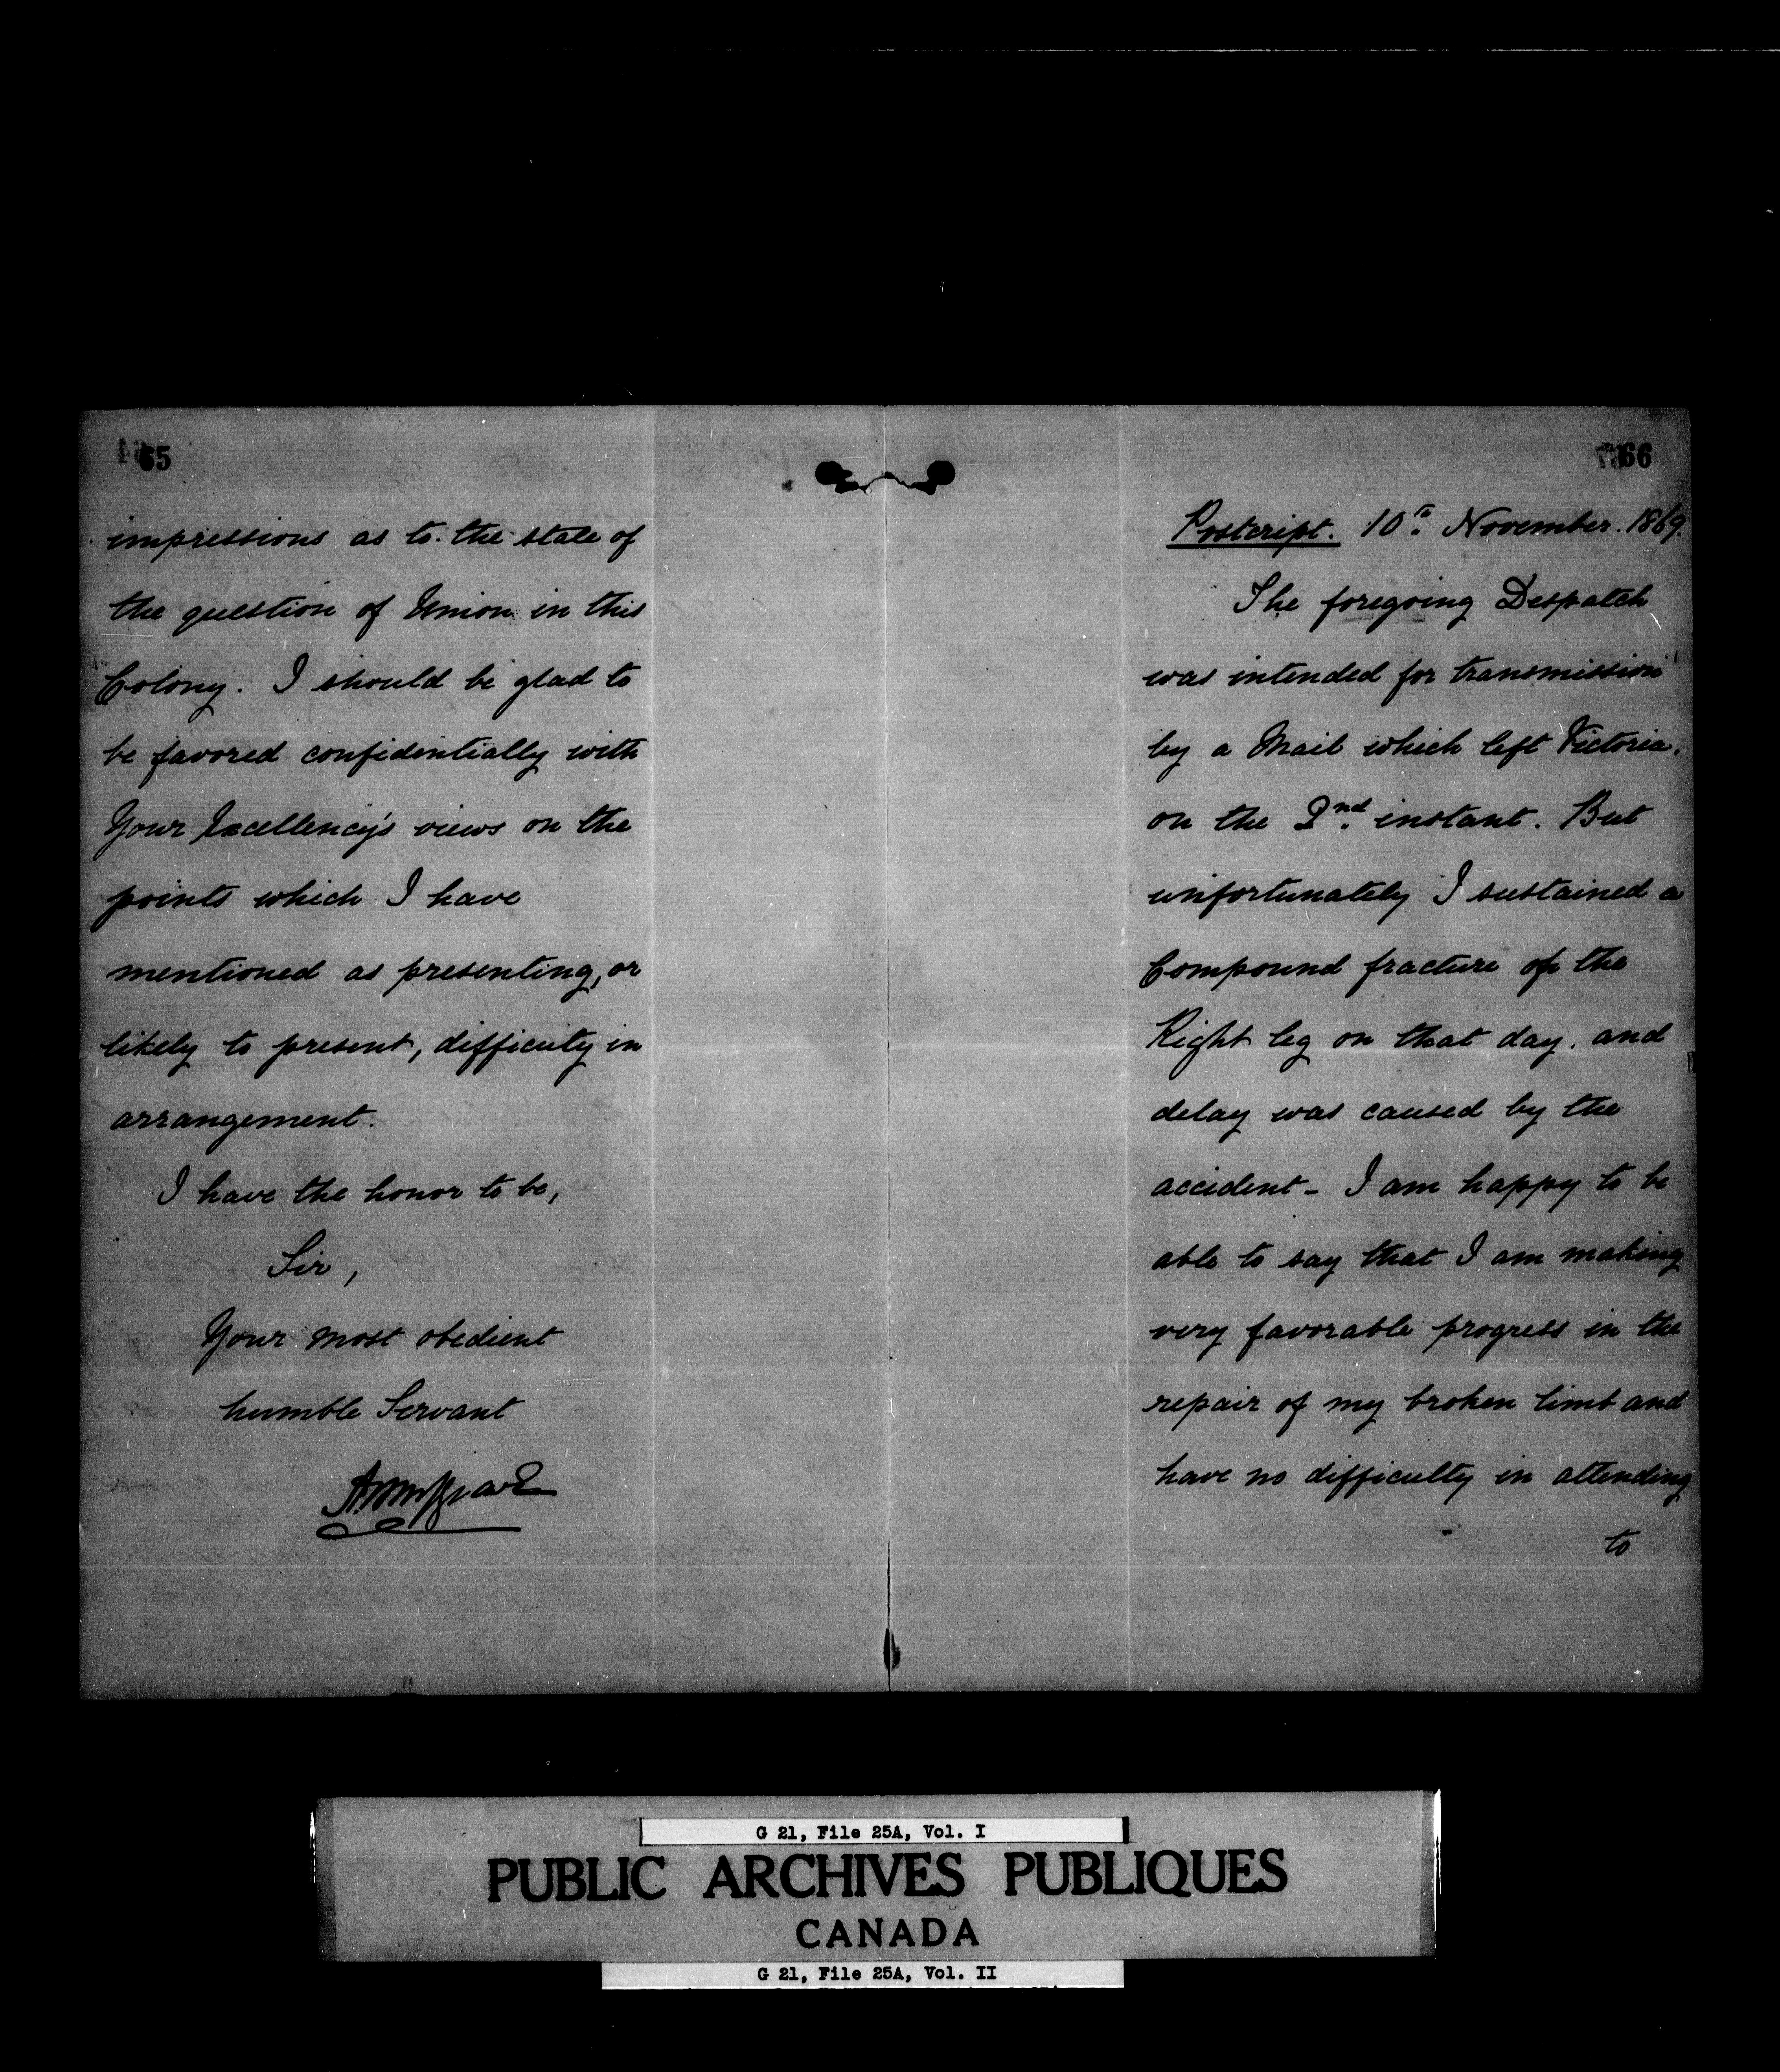 65
impressions as to the state of
the question of Union in this
Colony. I should be glad to
be favored confidentially with
Your Excellency's views on the
points which I have
mentioned as presenting, or
likely to present, difficulty in
arrangement.
I have the honor to be,
Sir,
Your most obedient
humble Servant
66
Postcript. 10th November. 1869.
The foregoing Despatch
was intended for transmission
by a Mail which left Victoria.
on the 2nd instant. But
unfortunately I sustained a
Compound fracture of the
Right leg on that day. and
delay was caused by the
accident - I am happy to be
able to say that I am making
very favorable progress in the
repair of my broken limb and
have no difficulty in attending
to
G 21, File 25A, Vol. I
PUBLIC ARCHIVES PUBLIQUES
CANADA
G 21, File 25A, Vol. II